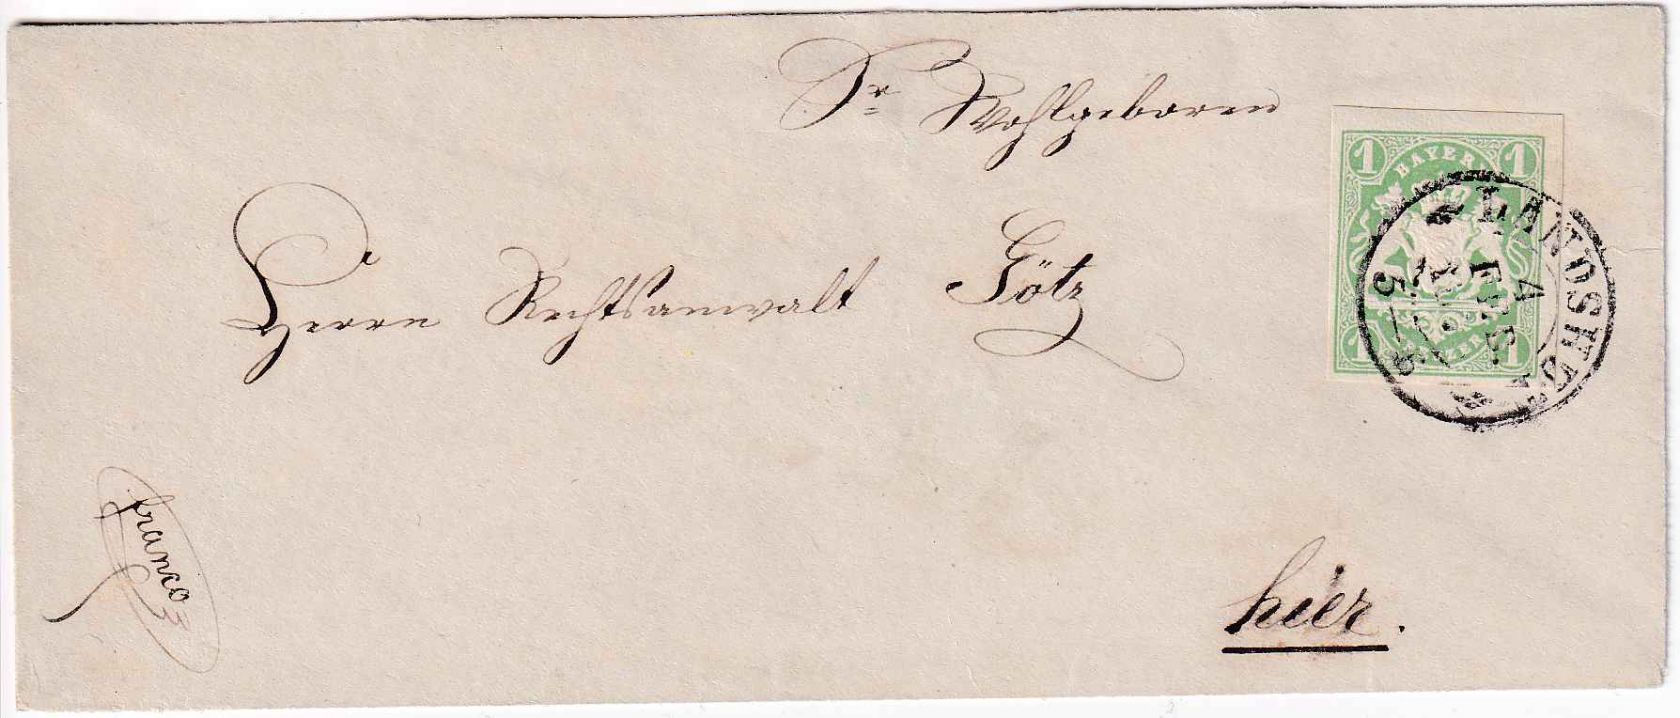 Sr Wohlgeboren
Herrn Rechtsanwalt Götz
hier.
franco
1 BAYERN 1
1 KREUZER 1
LANDSHUT
4
FEB.
5–6